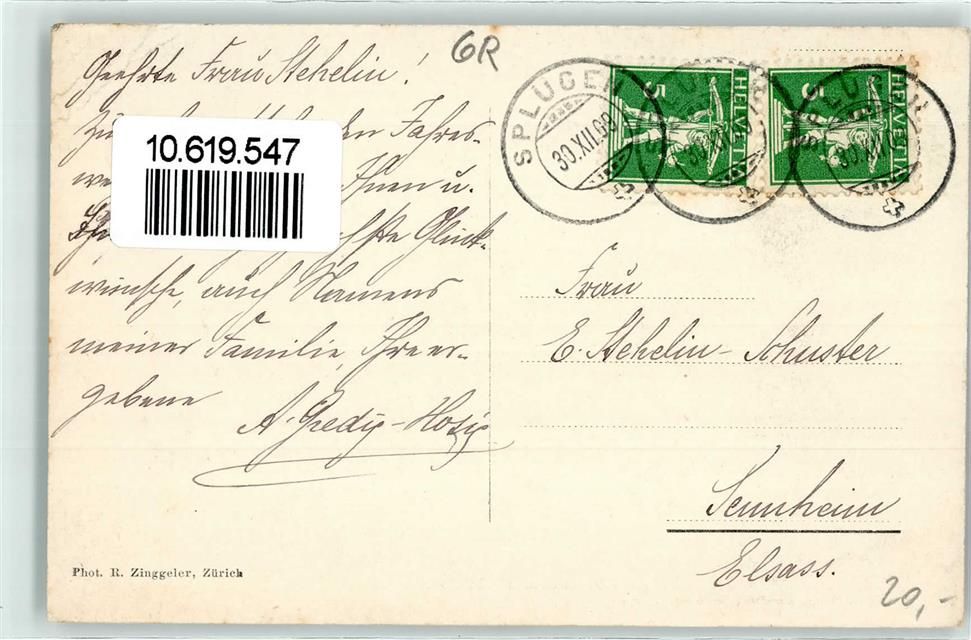 GR
Geehrte Frau Stehelin!
Zum
den Jahres-
we
Ihnen u.
Glück-
wünsche, auch Namens
meiner Familie, Ihre er-
gebene
A. Gredig-Hösig
10.619.547
SPLÜGEN
30.XII.09
HELVETIA
5
HELVETIA
5
Frau
E. Stehelin-Schuster
Sennheim
Elsass.
Phot. R. Zinggeler, Zürich
20,-